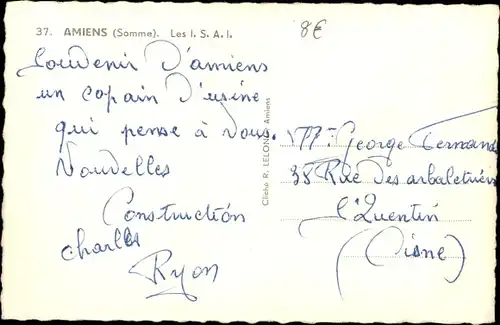 37. AMIENS (Somme). Les I. S. A. I.
8€
Souvenir D'amiens
un copain D'usine
qui pense à Vous.
Nouvelles
Construction
charles
Ryon
Cliché R. LELONG, Amiens
Mr George Fernand
38 Rue Des arbaletriers
St Quentin
(Aisne)